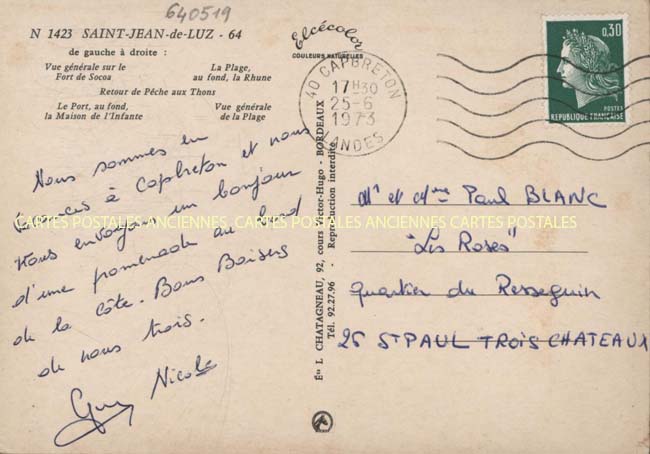 640519
N 1423 SAINT-JEAN-de-LUZ - 64
de gauche à droite :
Vue générale sur le Fort de Socoa
La Plage, au fond, la Rhune
Retour de Pêche aux Thons
Le Port, au fond, la Maison de l'Infante
Vue générale de la Plage
Nous sommes en
vacances à Capbreton et nous
vous envoyons un bonjour
d'une promenade au bord
de la côte. Bons Baisers
de nous trois.
Guy Nicole
Elcécolor
COULEURS NATURELLES
Éts L. CHATAGNEAU, 92, cours Victor-Hugo - BORDEAUX
Tél. 92.27.96 - Reproduction interdite
40 CAPBRETON
17H30
25-6
1973
LANDES
0,30
POSTES
REPUBLIQUE FRANÇAISE
Mr et Mme Paul BLANC
"Les Roses"
Quartier du Resseguin
26 ST PAUL TROIS CHATEAUX
CARTES POSTALES ANCIENNES CARTES POSTALES ANCIENNES CARTES POSTALES